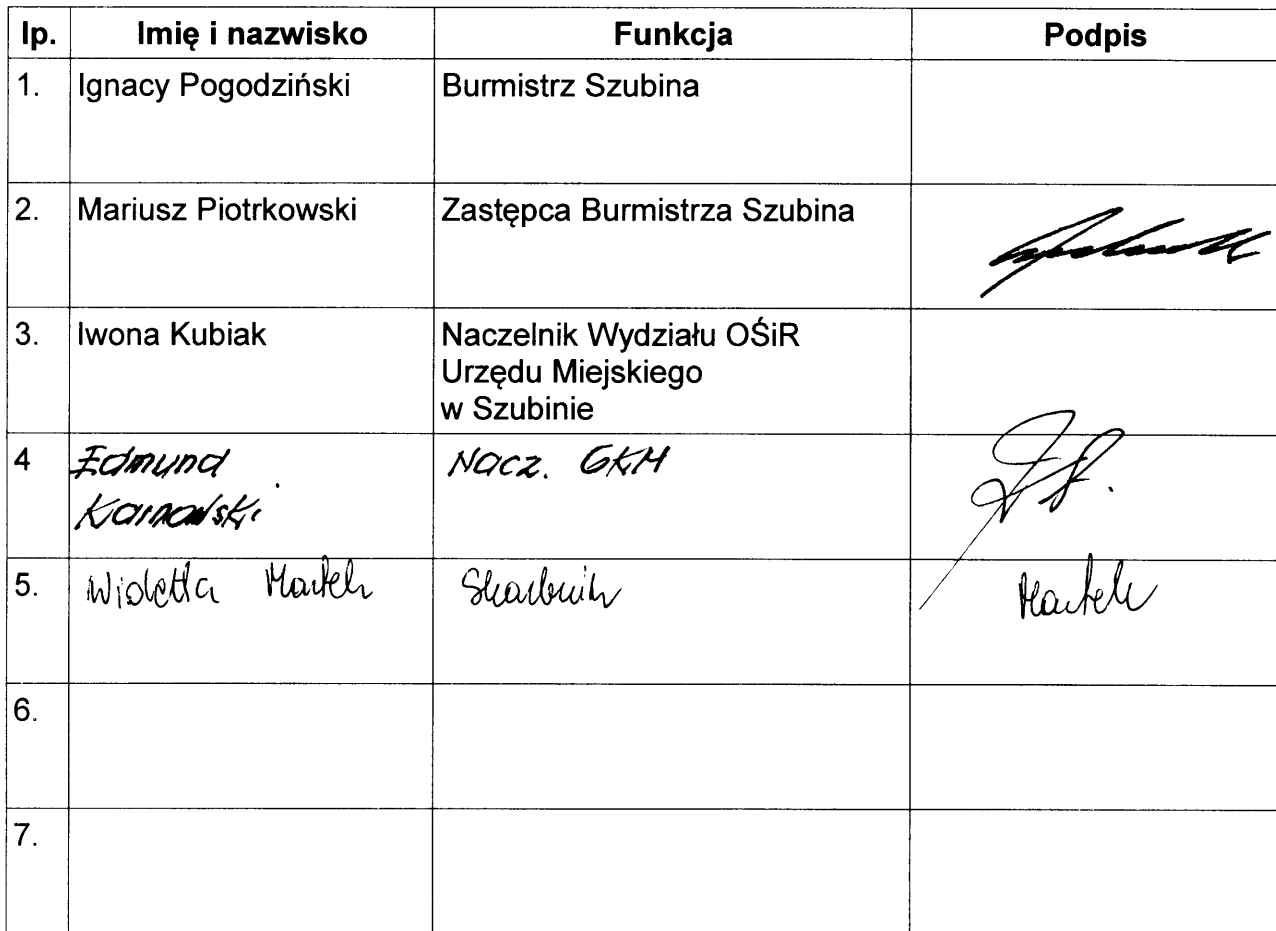 lp. Imię i nazwisko Funkcja Podpis
1. Ignacy Pogodziński Burmistrz Szubina
2. Mariusz Piotrkowski Zastępca Burmistrza Szubina
3. Iwona Kubiak Naczelnik Wydziału OŚiR
Urzędu Miejskiego
w Szubinie
4 Edmund Nacz. GKM
Karnowski
5. Wioletta Martek Skarbnik Martek
6.
7.